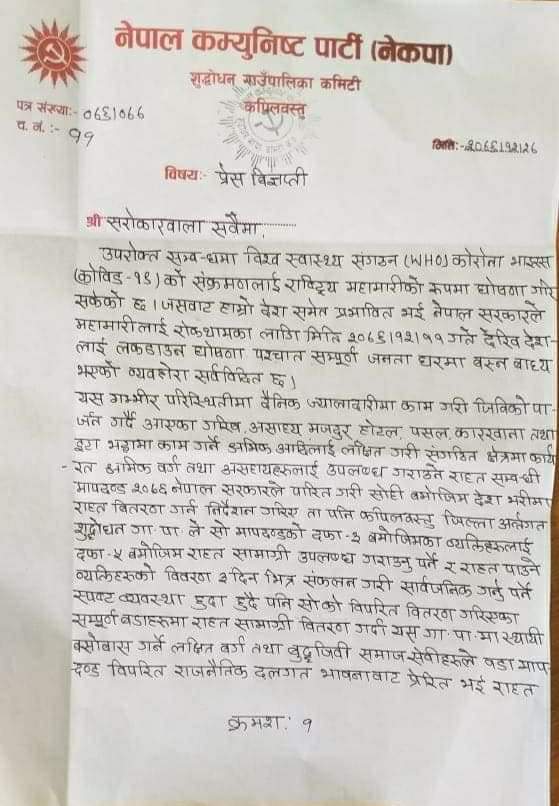 नेपाल कम्युनिष्ट पार्टी (नेकपा)
शुद्धोधन गाउँपालिका कमिटी
कपिलवस्तु
पत्र संख्या:- ०७६।०७७
च. नं. :- ११
मिति:-२०७६।१२।२६
विषय:- प्रेस विज्ञप्ती
श्री सरोकारवाला सवैमा,
उपरोक्त सम्बन्धमा विश्व स्वास्थ्य संगठन (WHO) कोरोना भाइरस
(कोविड -१९) को संक्रमणलाई राष्ट्रिय महामारीको रुपमा घोषणा गरि
सकेको छ । जसवाट हाम्रो देश समेत प्रभावित भई नेपाल सरकारले
महामारीलाई रोकथामका लागि मिति २०७६।१२।११ गते देखि देश-
लाई लकडाउन घोषणा पश्चात सम्पूर्ण जनता घरमा बस्न बाध्य
भएको व्यवहोरा सर्वविदित छ ।
यस गम्भीर परिस्थितीमा दैनिक ज्यालादारीमा काम गरी जिविको पा-
र्जन गर्दै आएका गरिब, असाहाय मजदुर होटल, पसल, कारखाना तथा
इटा भट्टामा काम गर्ने श्रमिक आदिलाई लक्षित गरी संगठित क्षेत्रमा कार्य
- रत श्रमिक वर्ग तथा असहायहरुलाई उपलब्ध गराउने राहत सम्बन्धी
मापदण्ड २०७६ नेपाल सरकारले पारित गरी सोही बमोजिम देश भरीमा
राहत वितरण गर्न निर्देशन गरिए ता पनि कपिलवस्तु जिल्ला अर्न्तगत
शुद्धोधन गा. पा. ले सो मापदण्डको दफा-३ बमोजिमका व्यक्तिहरुलाई
दफा-५ बमोजिम राहत सामाग्री उपलब्ध गराउनु पर्ने र राहत पाउने
व्यक्तिहरुको विवरण ३ दिन भित्र संकलन गरी सार्वजनिक गर्नु पर्ने
स्पष्ट व्यवस्था हुदा हुदै पनि सोको विपरित वितरण गरिएका
सम्पूर्ण वडाहरुमा राहत सामाग्री वितरण गर्दा यस गा. पा. मा स्थायी
बसोबास गर्ने लक्षित वर्ग तथा बुद्धजिवी समाजसेवीहरुले वडा माप-
दण्ड विपरित राजनैतिक दलगत भावनाबाट प्रेरित भई राहत
क्रमश: १